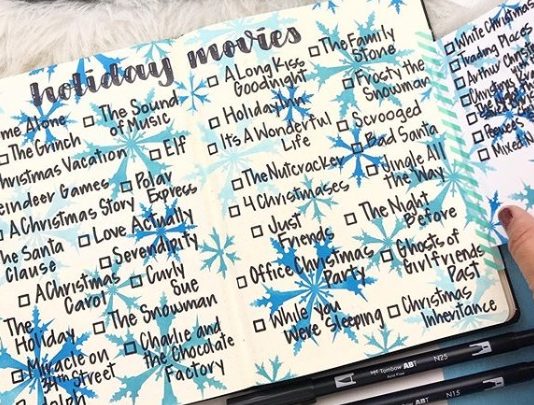 holiday movies
me Alone
The Grinch
hristmas Vacation
eindeer Games
A Christmas Story
he Santa
Clause
A Christmas
Carol
The
Holiday
Miracle on
34th Street
dolph
The Sound
of Music
Elf
Polar
Express
Love Actually
Serendipity
Curly
Sue
The Snowman
Charlie and
the Chocolate
Factory
A Long Kiss
Goodnight
Holiday Inn
It's A Wonderful
Life
The Nutcracker
4 Christmases
Just
Friends
Office Christmas
Party
While You
Were Sleeping
The Family
Stone
Frosty the
Snowman
Scrooged
Bad Santa
Jingle All
the Way
The Night
Before
Ghosts of
Girlfriends
Past
Christmas
Inheritance
White Christmas
Trading Places
Arthur Christmas
Christmas
Mixed
Tombow ABT N25
Tombow ABT N15